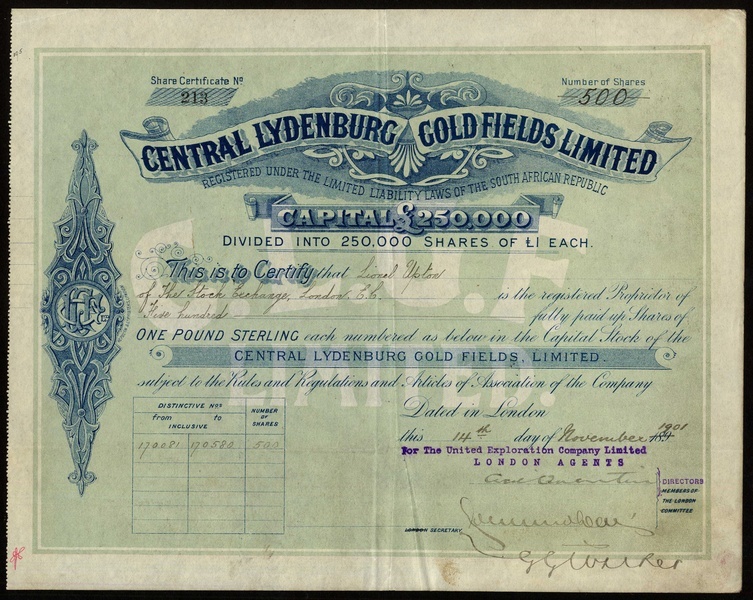 Share Certificate No
213
Number of Shares
500
CENTRAL LYDENBURG GOLD FIELDS LIMITED
REGISTERED UNDER THE LIMITED LIABILITY LAWS OF THE SOUTH AFRICAN REPUBLIC
CAPITAL £250,000
DIVIDED INTO 250,000 SHARES OF £1 EACH.
This is to Certify that Lionel Upton
of The Stock Exchange, London, E.C. is the registered Proprietor of
Five hundred fully paid up Shares of
ONE POUND STERLING each numbered as below in the Capital Stock of the
CENTRAL LYDENBURG GOLD FIELDS, LIMITED.
subject to the Rules and Regulations and Articles of Association of the Company
DISTINCTIVE Nos
from to
INCLUSIVE
NUMBER OF SHARES
170081 170580 500
Dated in London
this 14th day of November 1901
For The United Exploration Company Limited
LONDON AGENTS
DIRECTORS
MEMBERS OF THE LONDON COMMITTEE
LONDON SECRETARY
G G Walker
LIMITED.